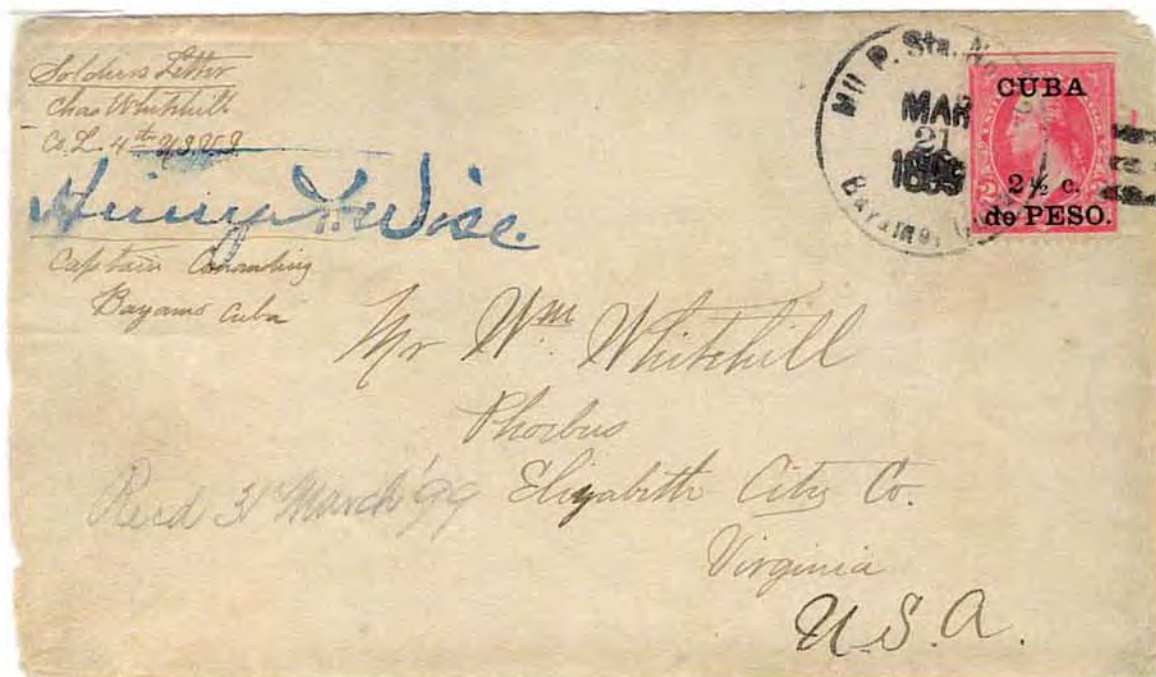 Soldiers Letter
Chas Whitehill
Co. L. 4th U.S.V.I.
Wise.
Captain Comanding
Bayamo Cuba
Mil P. Sta. No.
MAR
21
1899
BAYAMO
CUBA
2½ c.
de PESO.
Mr Wm Whitehill
Phoebus
Elizabeth City Co.
Virginia
U.S.A.
Recd 31 March '99